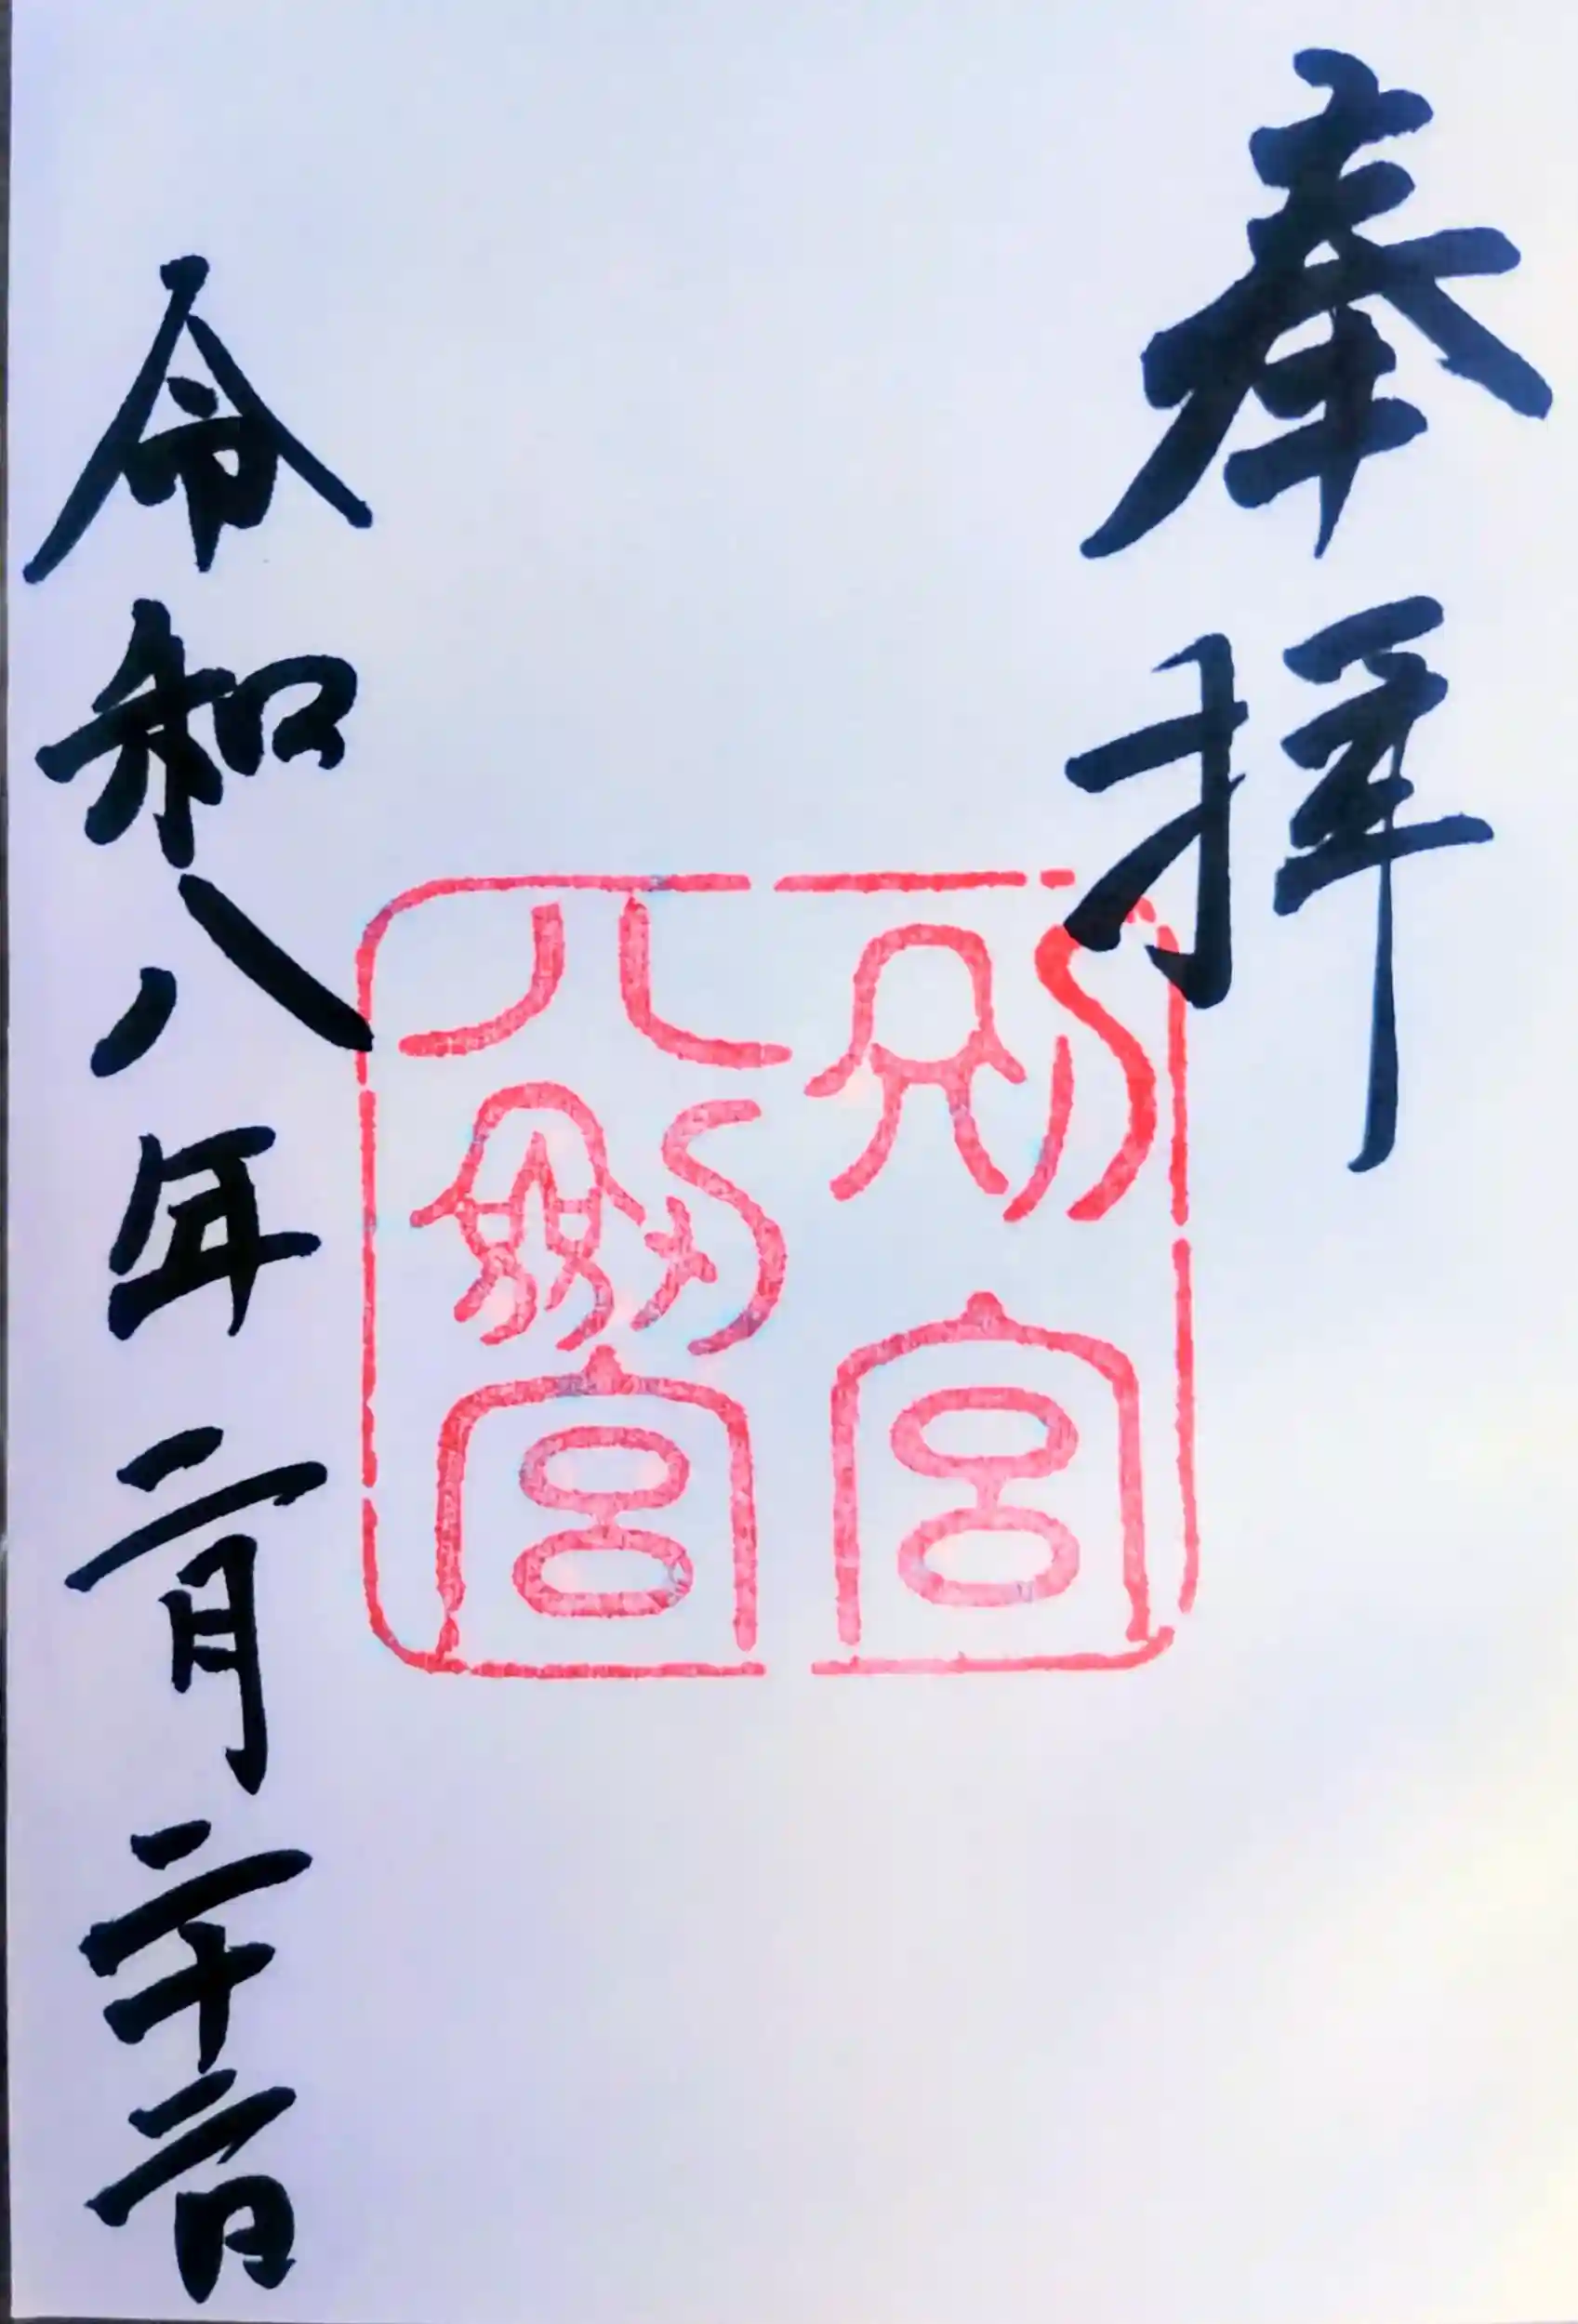 奉拝
別宮
八劔宮
令和八年二月二十二日